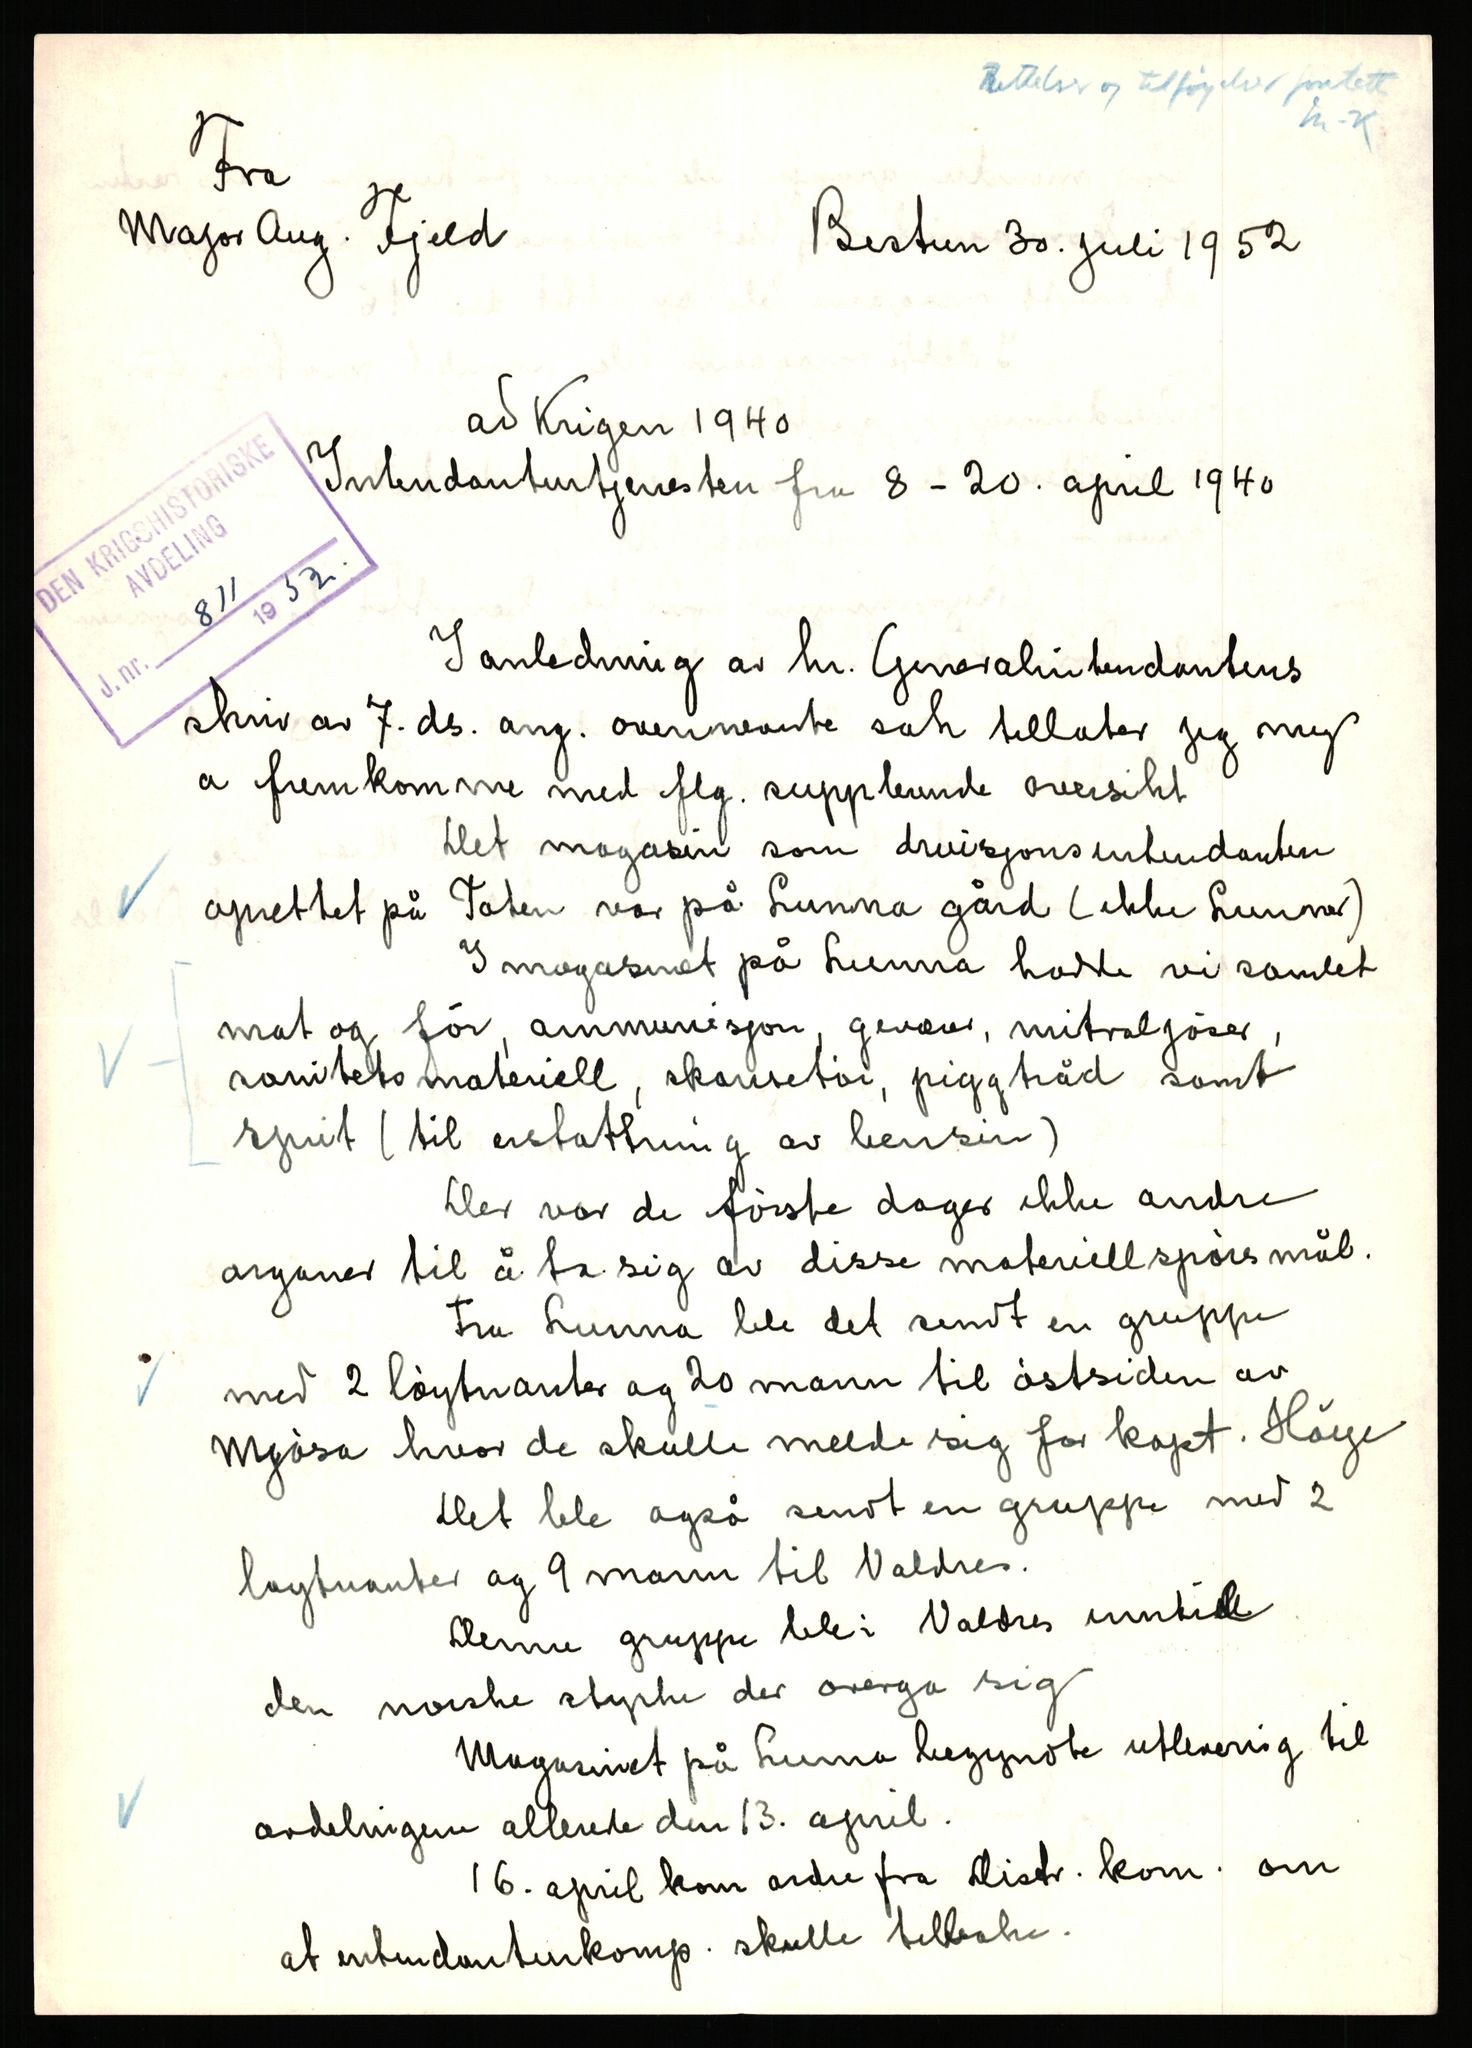 Rettelser og tilföyelser foretatt
M-K
Fra
Major Aug. Fjeld
Bestun 30. juli 1952
ad Krigen 1940
Intendanturtjenesten fra 8 - 20. april 1940
DEN KRIGSHISTORISKE
AVDELING
J. nr. 811 1952.
I anledning av hr. Generalintendantens
skriv av 7. ds. ang. ovennevnte sak tillater jeg meg
a fremkomme med flg. supplerende oversikt
Det magasin som divisjonsintendanten
oprettet på Toten var på Lunna gård (ikke Lunner)
I magasinet på Lunna hadde vi samlet
mat og fôr, ammunisjon, geværer, mitraljöser,
sanitetsmateriell, skansetöi, piggtråd samt
sprit (til erstattning av bensin)
Der var de förste dager ikke andre
organer til å ta sig av disse materiellspörsmål.
Fra Lunna ble det sendt en gruppe
med 2 löytnanter og 20 mann til östsiden av
Mjösa hvor de skulle melde sig for kapt. Höye
Det ble også sendt en gruppe med 2
loytnanter og 9 mann til Valdres.
Denne gruppe ble i Valdres inntill
den norske styrke der overga sig
Magasinet på Lunna begyndte utlevering til
avdelingene allerede den 13. april.
16. april kom ordre fra Distr. kom. om
at intendanturkomp. skulle tilbake.